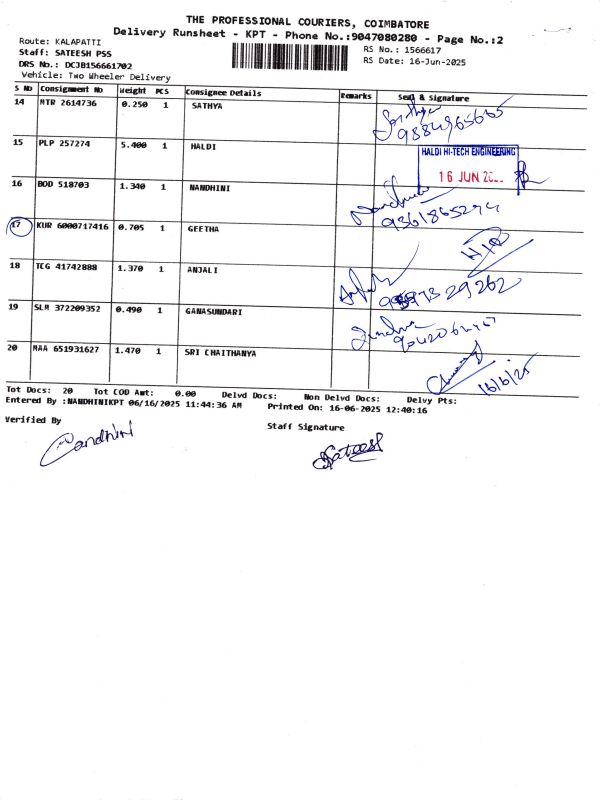 THE PROFESSIONAL COURIERS, COIMBATORE
Delivery Runsheet - KPT - Phone No.:9047080280 - Page No.:2
Route: KALAPATTI
RS No.: 1566617
Staff: SATEESH PSS
RS Date: 16-Jun-2025
DRS No.: DCJB156661702
Vehicle: Two Wheeler Delivery
S No Consignment No Weight PCS Consignee Details Remarks Seal & Signature
14 MTR 2614736 0.250 1 SATHYA
Sathya
9884965665
15 PLP 257274 5.400 1 HALDI
HALDI HI-TECH ENGINEERING
16 JUN
16 BOD 518703 1.340 1 NANDHINI
Nandhini
17 KUR 6000717416 0.705 1 GEETHA
18 TCG 41742888 1.370 1 ANJALI
19 SLM 372209352 0.490 1 GANASUNDARI
20 MAA 651931627 1.470 1 SRI CHAITHANYA
16/6/25
Tot Docs: 20 Tot COD Amt: 0.00 Delvd Docs: Non Delvd Docs: Delvy Pts:
Entered By :NANDHINIKPT 06/16/2025 11:44:36 AM Printed On: 16-06-2025 12:40:16
Verified By
Staff Signature
Nandhini
Sateesh